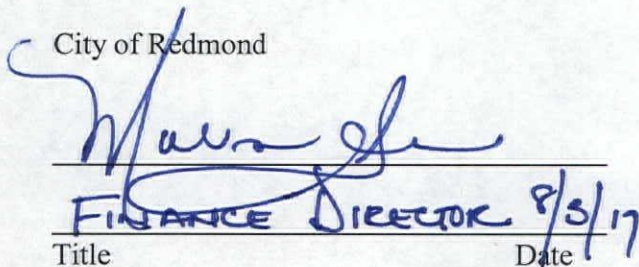 City of Redmond
FINANCE DIRECTOR 8/3/17
Title Date